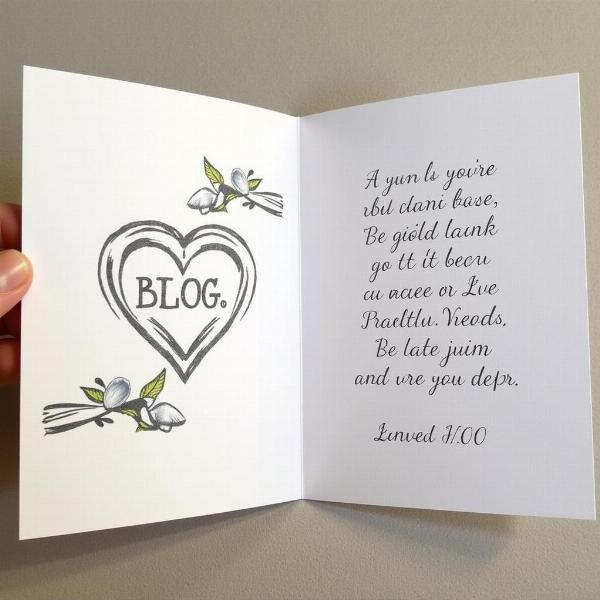 BLOG.
A yun ls you're
ıbul clani base,
Be giold launk
go tt it becu
cu aıcee or Lve
Praeltlu. Vreods,
Be late juim
and vre you depr.
Lenved H.OO